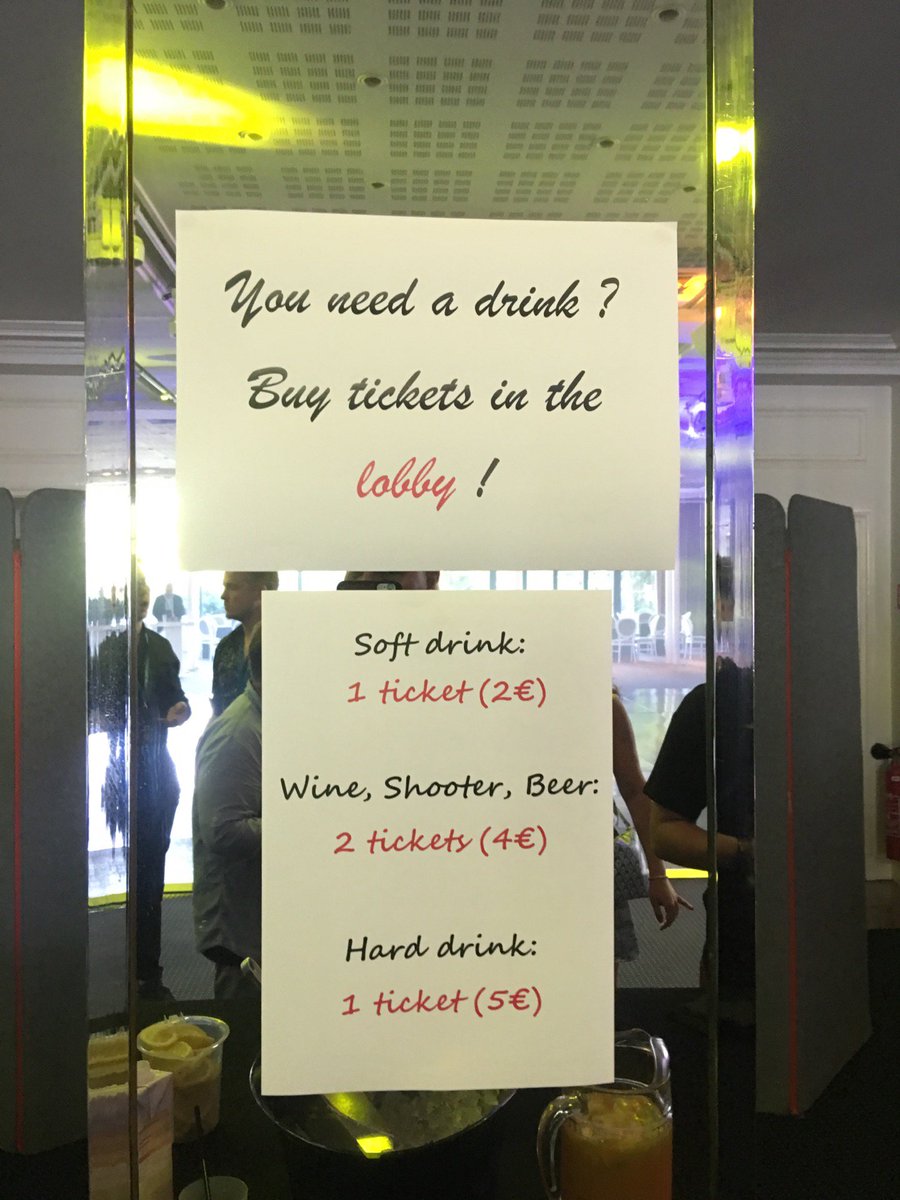 You need a drink ?
Buy tickets in the
lobby !
Soft drink:
1 ticket (2€)
Wine, Shooter, Beer:
2 tickets (4€)
Hard drink:
1 ticket (5€)